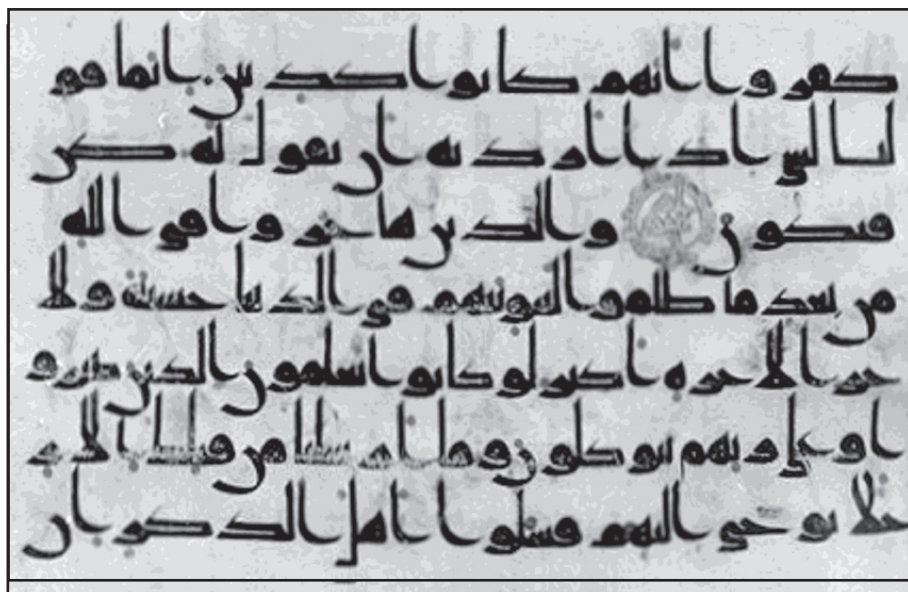 كفروا انهم كانوا كذبين انما قو
لنا لشى اذا اردنه ان نقول له كن
فيكون والذين هاجروا فى الله
من بعد ما ظلموا لنبوئنهم فى الدنيا حسنة ولا
جر الاخرة اكبر لو كانوا يعلمون الذين صبرو
ا وعلى ربهم يتوكلون وما ارسلنا من قبلك الا ر
جلا نوحى اليهم فسئلوا اهل الذكر ان